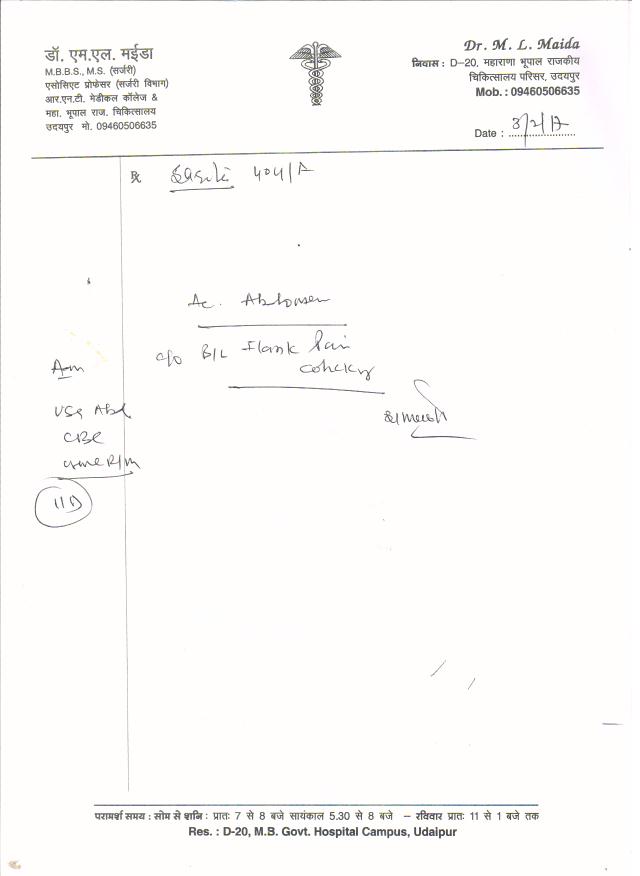 डॉ. एम.एल. मईडा
M.B.B.S., M.S. (सर्जरी)
एसोसिएट प्रोफेसर (सर्जरी विभाग)
आर.एन.टी. मेडीकल कॉलेज &
महा. भूपाल राज. चिकित्सालय
उदयपुर मो. 09460506635
Dr. M. L. Maida
निवास : D-20, महाराणा भूपाल राजकीय
चिकित्सालय परिसर, उदयपुर
Mob. : 09460506635
Date : 3/2/17
℞ 404/A
Ac. Abdomen
c/o B/L Flank Pain
colicky
Adv
USG Abd
CBC
urine R/M
परामर्श समय : सोम से शनि : प्रातः 7 से 8 बजे सायंकाल 5.30 से 8 बजे – रविवार प्रातः 11 से 1 बजे तक
Res. : D-20, M.B. Govt. Hospital Campus, Udaipur